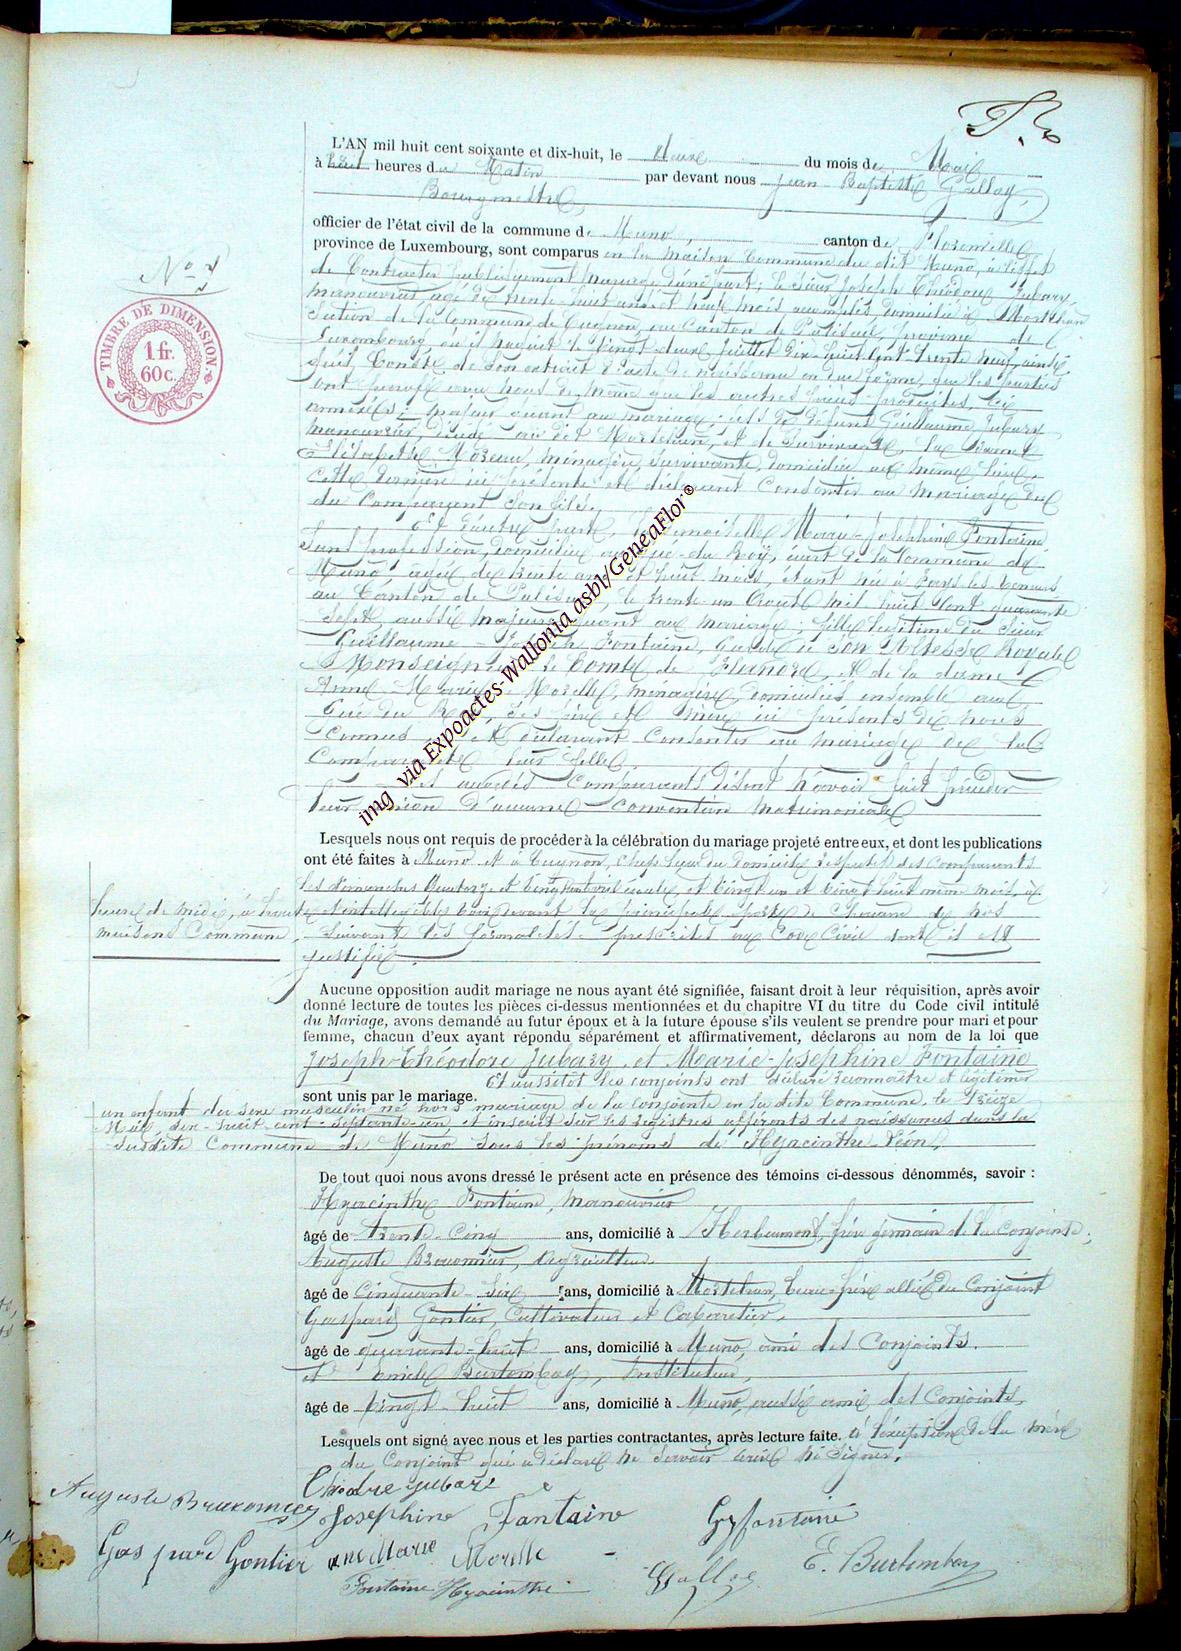 L'AN mil huit cent soixante et dix-huit, le deux du mois de Mai
à huit heures du Matin par devant nous Jean Baptiste Galloy,
Bourgmestre,
officier de l'état civil de la commune de Muno, canton de Florenville
province de Luxembourg, sont comparus en la maison Commune du dit Muno, à l'effet
de Contracter publiquement mariage d'une part; le sieur Joseph Théodore Jubary,
manouvrier, agé de trente huit ans et neuf mois accomplis, domicilié à Mortehan
Section de la Commune de Cugnon, au Canton de Paliseul, province de
Luxembourg où il naquit le vingt deux juillet dix huit cent trente neuf, ainsi
qu'il Conste de son extrait d'acte de naissance en due forme, que les parties
ont produit devant nous de même que les autres pièces produites, ci
annexées; majeur quant au mariage; fils de défunt Guillaume Jubary
manouvrier, décédé au dit Mortehan, et de survivante, la Dame
Elisabethe Moreau, ménagère, survivante, domiciliée au même lieu,
cette dernière ici présente et déclarant Consentir au mariage du
du Comparant son fils.
Et d'autre part, Demoiselle Marie-Joséphine Fontaine,
sans profession, domiciliée au Gué-du-Roy, écart de la Commune de
Muno âgée de trente ans et huit mois, étant née à Fays les Veneurs
au Canton de Paliseul, le trente-un Août mil huit cent quarante
sept, aussi majeure quant au mariage; fille légitime du Sieur
Guillaume Joseph Fontaine, Garde à Son Altesse Royale
Monseigneur le Comte de Flandre, et de la dame
Anne-Marie Morelle, ménagère, domiciliés ensemble au
Gué du Roy, ses père et mère ici présents de nous
Connus et déclarant Consentir au mariage de la
Comparante leur fille.
Les susdits Comparants disent n'avoir fait précéder
leur union d'aucune Convention matrimoniale
Lesquels nous ont requis de procéder à la célébration du mariage projeté entre eux, et dont les publications
ont été faites à Muno et à Cugnon, Chefs lieux du domicile respectif des Comparants
les dimanches Quatorze et vingt-un avril écoulé, et vingt un et vingt huit même mois, à
heure de midi, à haute et intelligible voix devant la principale porte de chacune de nos
maisons Commune, suivant les formalités prescrites au Code Civil dont il est
justifié.
Aucune opposition audit mariage ne nous ayant été signifiée, faisant droit à leur réquisition, après avoir
donné lecture de toutes les pièces ci-dessus mentionnées et du chapitre VI du titre du Code civil intitulé
du Mariage, avons demandé au futur époux et à la future épouse s'ils veulent se prendre pour mari et pour
femme, chacun d'eux ayant répondu séparément et affirmativement, déclarons au nom de la loi que
Joseph-Théodore Jubary, et Marie-Joséphine Fontaine
Et aussitôt les conjoints ont déclaré reconnaître et légitimer
sont unis par le mariage.
un enfant du sexe masculin né hors mariage de la conjointe en la dite Commune, le treize
Mai, dix-huit-cent-septante-un, et inscrit sur les registres afférents des naissances dans la
susdite Commune de Muno sous les prénoms de Hyacinthe Léon.
De tout quoi nous avons dressé le présent acte en présence des témoins ci-dessous dénommés, savoir :
Hyacinthe Fontaine, manouvrier
âgé de trente-Cinq ans, domicilié à Herbeumont, frère germain de la conjointe,
Auguste Brucomnier, Agriculteur
âgé de Cinquante-six ans, domicilié à Mortehan, beau-frère allié du Conjoint
Gaspard Gontier, Cultivateur et Cabaretier,
âgé de quarante-huit ans, domicilié à Muno, ami des Conjoints.
et Emile Burtombay, Instituteur,
âgé de vingt-huit ans, domicilié à Muno, aussi ami des Conjoints.
Lesquels ont signé avec nous et les parties contractantes, après lecture faite. à l'exception de la mère
du Conjoint qui a déclaré ne savoir écrire ni signer.
Théodre jubari
Auguste Brucomnier Josephine Fantaine GJ fontaine
Gaspard Gontier anne Marie Morelle E. Burtombay
Fontaine Hyacinthe Galloy
No 7
TIMBRE DE DIMENSION.
1 fr.
60 c.
img via Expoactes-Wallonia asbl/GeneaFlor©